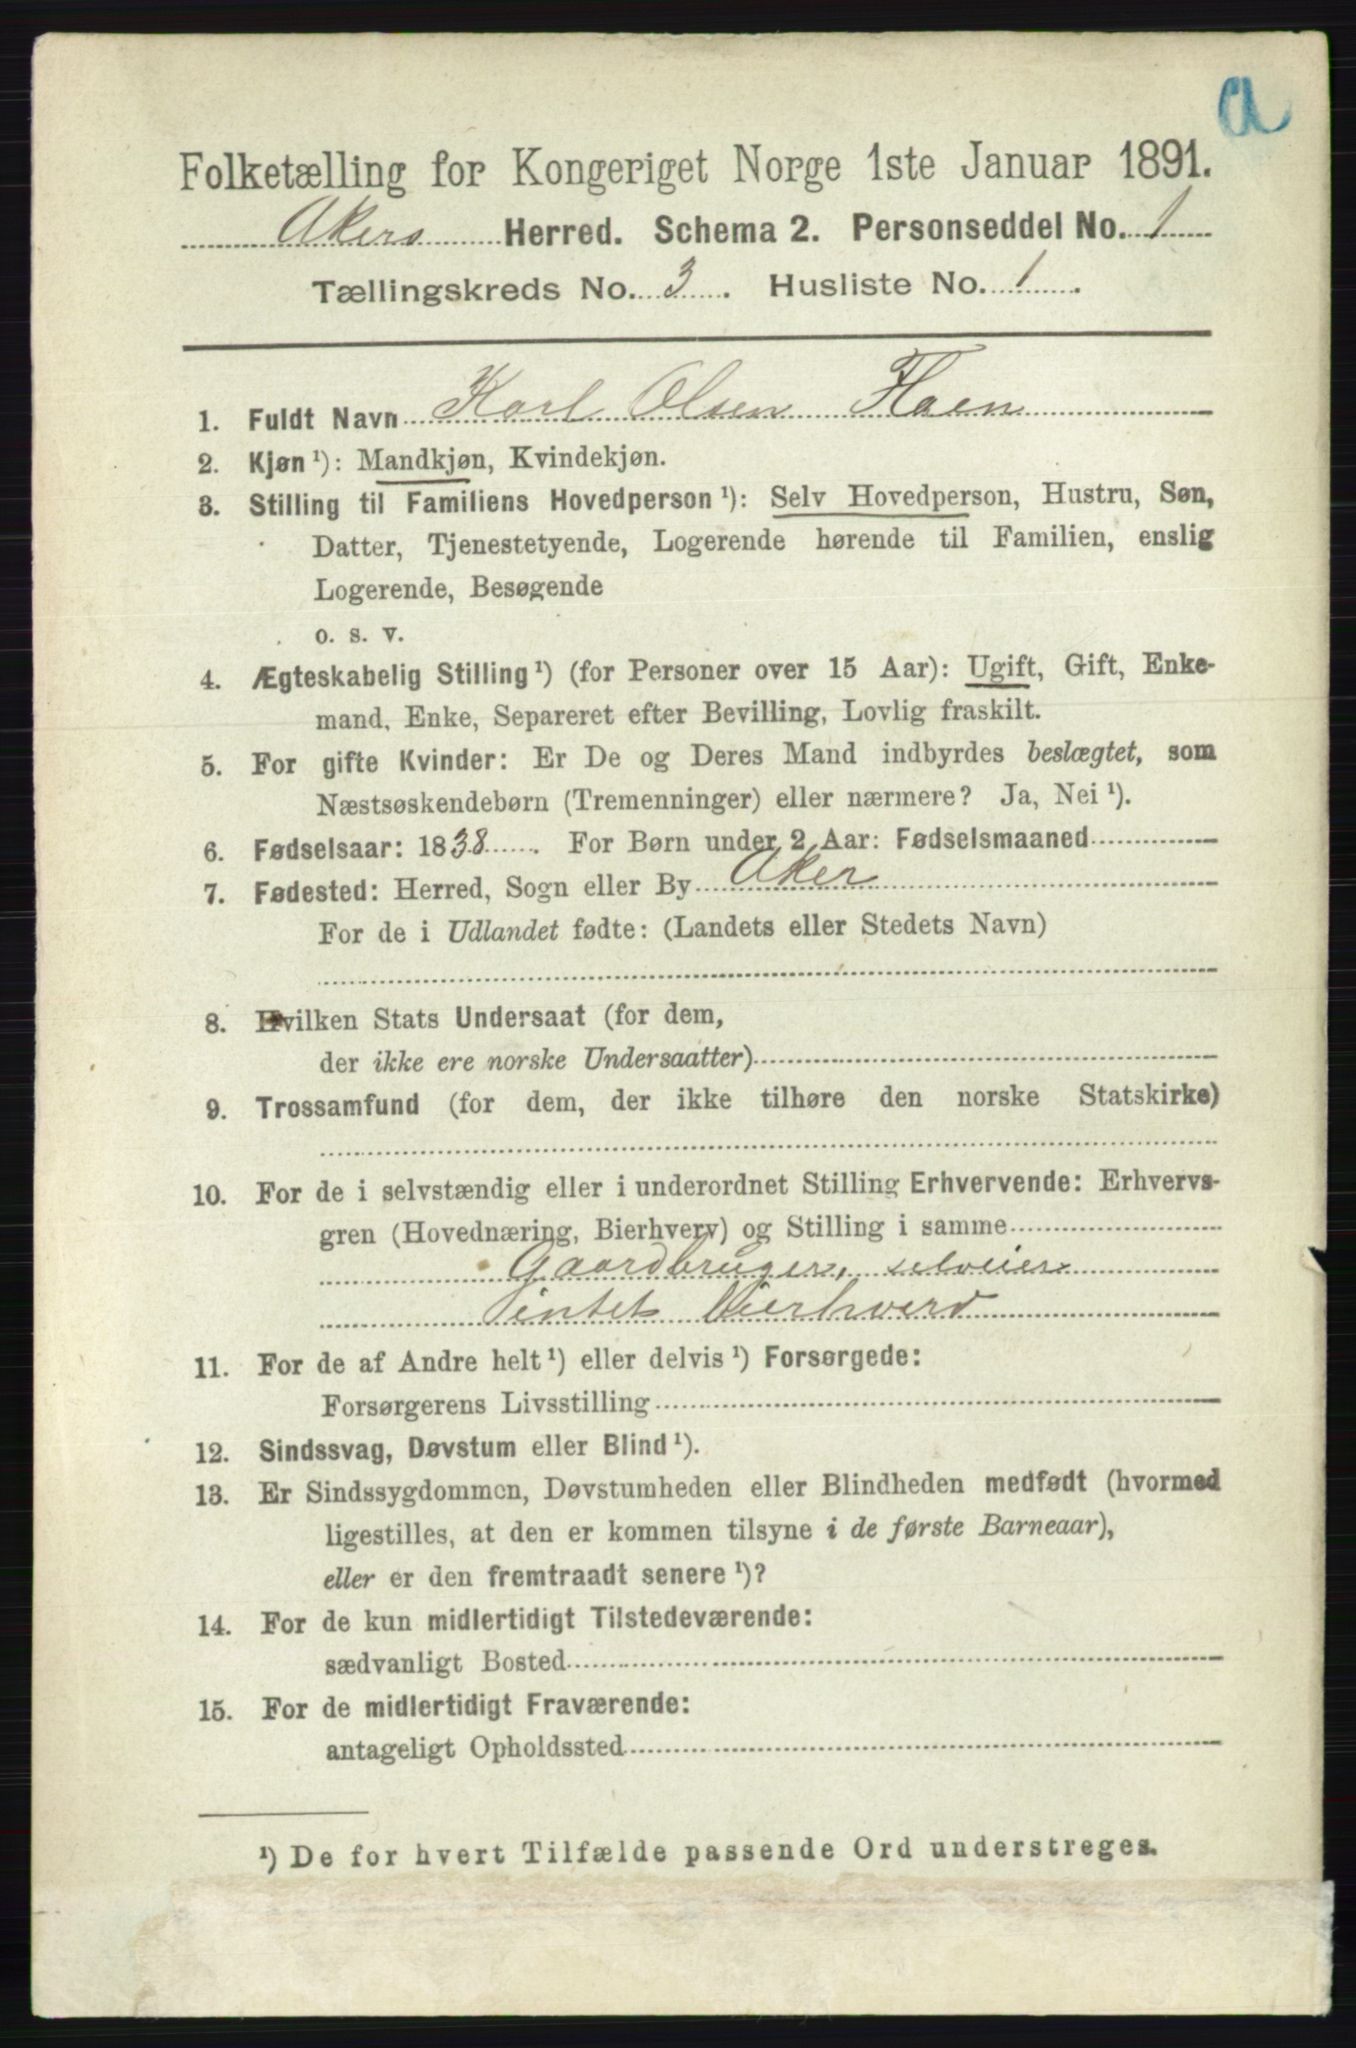 a
Folketælling for Kongeriget Norge 1ste Januar 1891.
Akers Herred. Schema 2. Personseddel No. 1
Tællingskreds No. 3. Husliste No. 1.
1. Fuldt Navn Karl Olsen Floen
2. Kjøn ¹): Mandkjøn, Kvindekjøn.
3. Stilling til Familiens Hovedperson ¹): Selv Hovedperson, Hustru, Søn,
Datter, Tjenestetyende, Logerende hørende til Familien, enslig
Logerende, Besøgende
o. s. v.
4. Ægteskabelig Stilling ¹) (for Personer over 15 Aar): Ugift, Gift, Enke-
mand, Enke, Separeret efter Bevilling, Lovlig fraskilt.
5. For gifte Kvinder: Er De og Deres Mand indbyrdes beslægtet, som
Næstsøskendebørn (Tremenninger) eller nærmere? Ja, Nei ¹).
6. Fødselsaar: 1838. For Børn under 2 Aar: Fødselsmaaned
7. Fødested: Herred, Sogn eller By Aker
For de i Udlandet fødte: (Landets eller Stedets Navn)
8. Hvilken Stats Undersaat (for dem,
der ikke ere norske Undersaatter)
9. Trossamfund (for dem, der ikke tilhøre den norske Statskirke)
10. For de i selvstændig eller i underordnet Stilling Erhvervende: Erhvervs-
gren (Hovednæring, Bierhverv) og Stilling i samme
Gaardbruger, selveier
intet Bierhverv
11. For de af Andre helt ¹) eller delvis ¹) Forsørgede:
Forsørgerens Livsstilling
12. Sindssvag, Døvstum eller Blind ¹).
13. Er Sindssygdommen, Døvstumheden eller Blindheden medfødt (hvormed
ligestilles, at den er kommen tilsyne i de første Barneaar),
eller er den fremtraadt senere ¹)?
14. For de kun midlertidigt Tilstedeværende:
sædvanligt Bosted
15. For de midlertidigt Fraværende:
antageligt Opholdssted
¹) De for hvert Tilfælde passende Ord understreges.